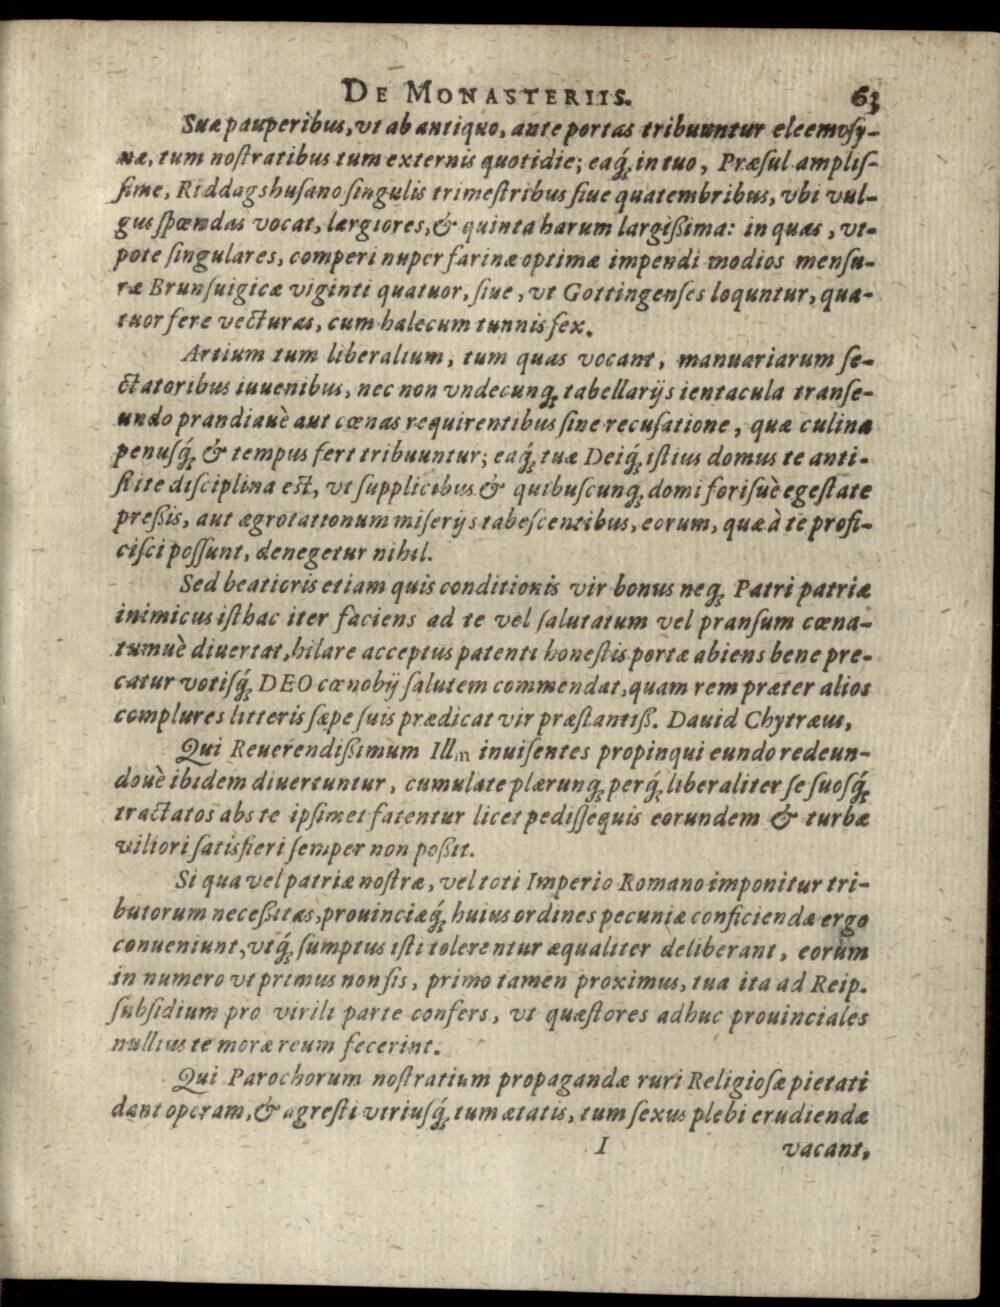 DE MONASTERIIS. 63
Suæ pauperibus, vt ab antiquo, ante portas tribuuntur eleemoſy-
næ, tum noſtratibus tum externis quotidie; eaq́; in tuo, Præſul ampliſ-
ſime, Riddagshuſano ſingulis trimeſtribus ſiue quatembribus, vbi vul-
gus ſpœndas vocat, largiores, & quinta harum largißima: in quas, vt-
pote ſingulares, comperi nuper farinæ optimæ impendi modios menſu-
ræ Brunſuigicæ viginti quatuor, ſiue, vt Gottingenſes loquuntur, qua-
tuor fere vecturas, cum halecum tunnis ſex.
Artium tum liberalium, tum quas vocant, manuariarum ſe-
ctatoribus iuuenibus, nec non vndecunq; tabellarijs ientacula tranſe-
undo prandiauè aut cœnas requirentibus ſine recuſatione, quæ culina
penuſq́; & tempus fert tribuuntur; eaq́; tuæ Deiq́; iſtius domus te anti-
ſtite diſciplina eſt, vt ſupplicibus & quibuſcunq; domi foriſuè egeſtate
preßis, aut ægrotationum miſerijs tabeſcentibus, eorum, quæ à te profi-
ciſci poſſunt, denegetur nihil.
Sed beatioris etiam quis conditionis vir bonus neq; Patri patriæ
inimicus iſthac iter faciens ad te vel ſalutatum vel pranſum cœna-
tumuè diuertat, hilare acceptus patenti honeſtis portæ abiens bene pre-
catur votiſq́; DEO cœnobij ſalutem commendat, quam rem præter alios
complures litteris ſæpe ſuis prædicat vir præſtantiß. Dauid Chytræus,
Qui Reuerendißimum Illm inuiſentes propinqui eundo redeun-
douè ibidem diuertuntur, cumulate plærunq; perq́; liberaliter ſe ſuoſq́;
tractatos abs te ipſimet fatentur licet pediſſequis eorundem & turbæ
viliori ſatisfieri ſemper non poßit.
Si qua vel patriæ noſtræ, vel toti Imperio Romano imponitur tri-
butorum neceßitas, prouinciæq́; huius ordines pecuniæ conficiendæ ergo
conueniunt, vtq́; ſumptus iſti tolerentur æqualiter deliberant, eorum
in numero vt primus non ſis, primo tamen proximus, tua ita ad Reip.
ſubſidium pro virili parte confers, vt quæſtores adhuc prouinciales
nullius te moræ reum fecerint.
Qui Parochorum noſtratium propagandæ ruri Religioſæ pietati
dant operam, & agreſti vtriuſq́; tum ætatis, tum ſexus plebi erudiendæ
I vacant,